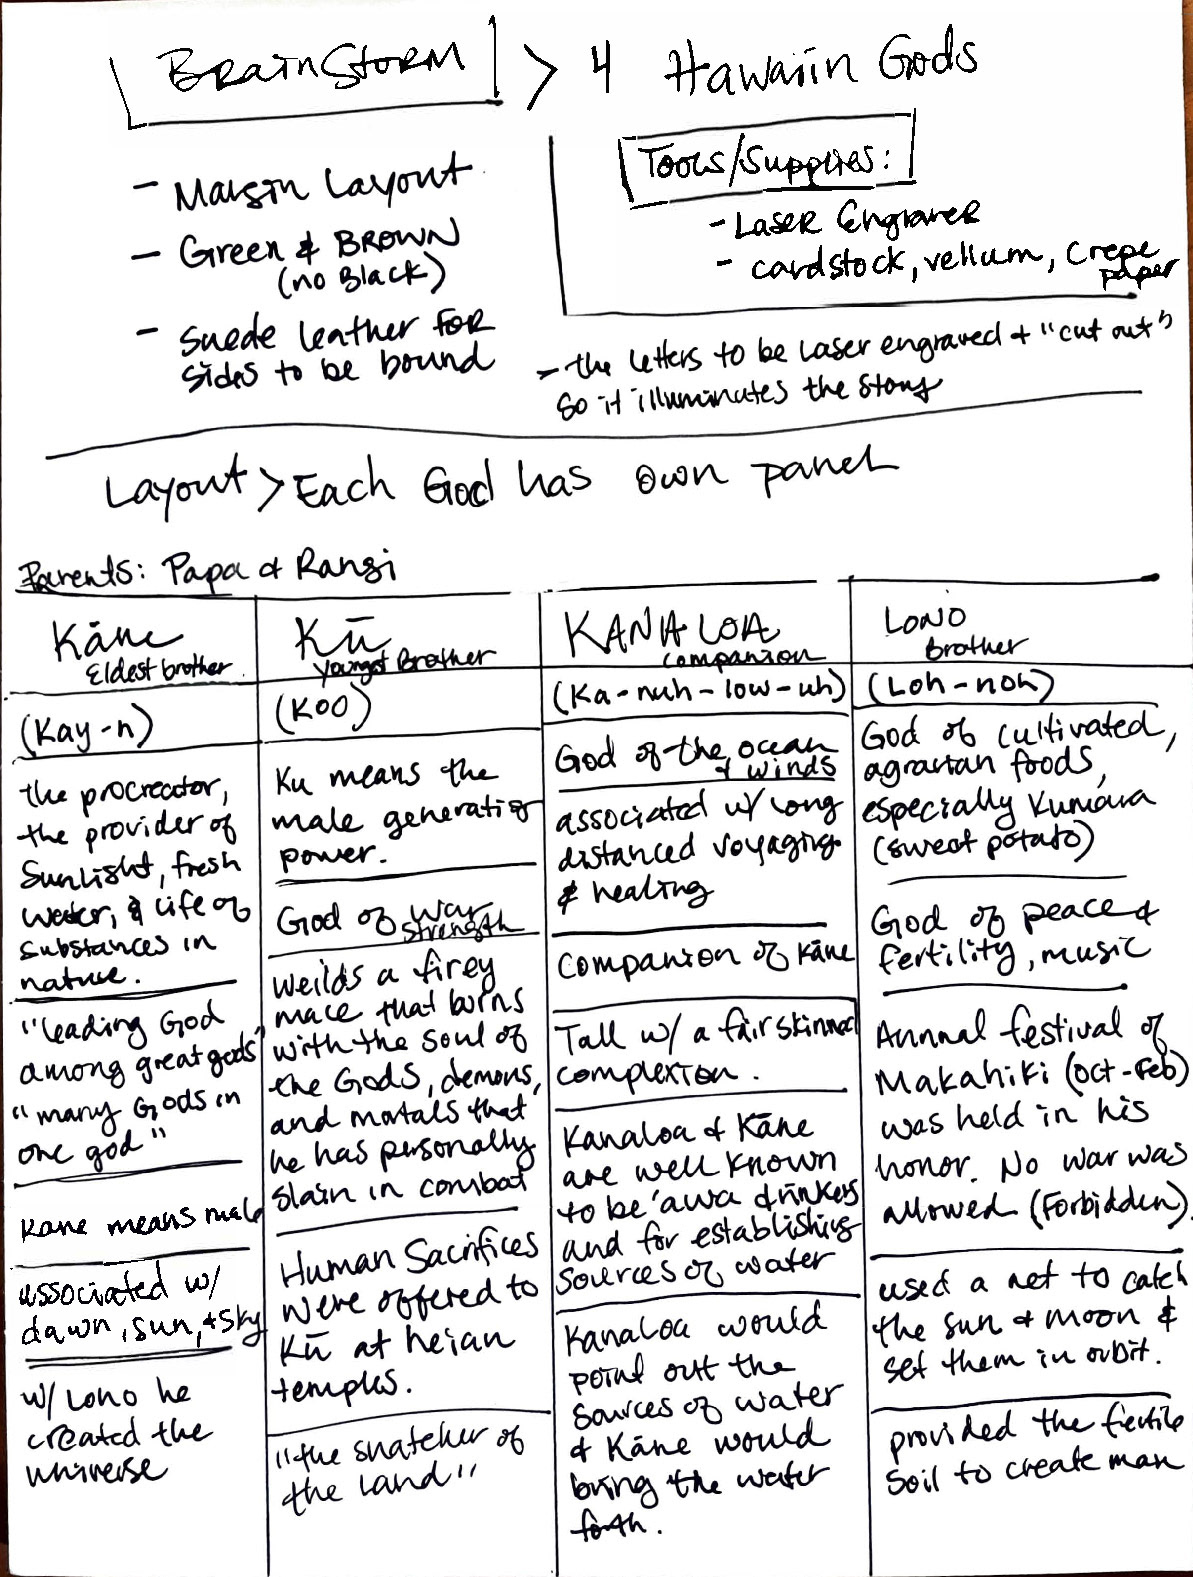 BRainStoRM > 4 Hawaiin Gods
- Margin Layout
- Green & BROWN
(no Black)
- Suede leather FOR
sides to be bound
Tools/Supplies:
- LaseR Engraver
- cardstock, vellum, Crepe
paper
- the letters to be laser engraved + "cut out"
so it illuminates the story
Layout > Each God has own panel
Parents: Papa & Rangi
Kāne
Eldest brother
(Kay-n)
the procreator,
the provider of
Sunlight, fresh
water, & life of
substances in
nature.
"leading God
among great gods"
"many Gods in
one god"
Kane means male
associated w/
dawn, sun, + sky
w/ Lono he
created the
universe
Kū
Youngest Brother
(KOO)
Ku means the
male generating
power.
God of war
strength
Weilds a firey
mace that burns
with the soul of
the Gods, demons,
and mortals that
he has personally
slain in combat
Human Sacrifices
were offered to
Kū at heian
temples.
"the snatcher of
the land"
KANALOA
companion
(Ka-nuh-low-uh)
God of the ocean
+ winds
associated w/ long
distanced voyaging
& healing
Companion of Kāne
Tall w/ a fair skinned
complexion.
Kanaloa & Kāne
are well known
to be 'awa drinkers
and for establishing
sources of water
Kanaloa would
point out the
sources of water
& Kāne would
bring the water
forth.
LONO
brother
(Loh-noh)
God of cultivated,
agrarian foods,
especially Kumara
(sweet potato)
God of peace &
fertility, music
Annual festival of
Makahiki (oct-Feb)
was held in his
honor. No war was
allowed (Forbidden).
used a net to catch
the sun & moon &
set them in orbit.
provided the fertile
soil to create man